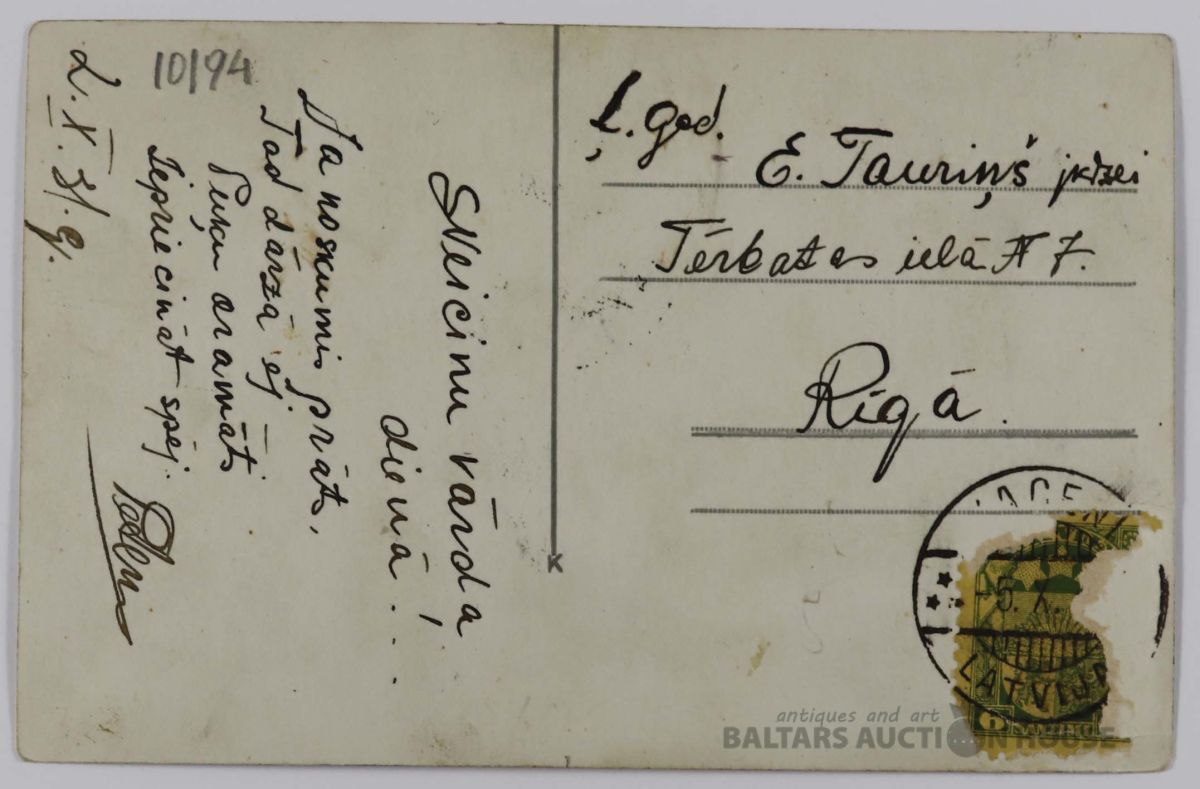 10/94
Sveicinu vārda
dienā!..
Ja noskumis prāts,
Tad dārzā ej
Puķu aramāts
Iepriecināt spēj.
X. 31. g.
Ļ. god.
E. Tauriņš jkdzei
Tērbatas ielā № 7.
Rīgā.
5. X.
LATVIJA
6
antiques and art
BALTARS AUCTION HOUSE